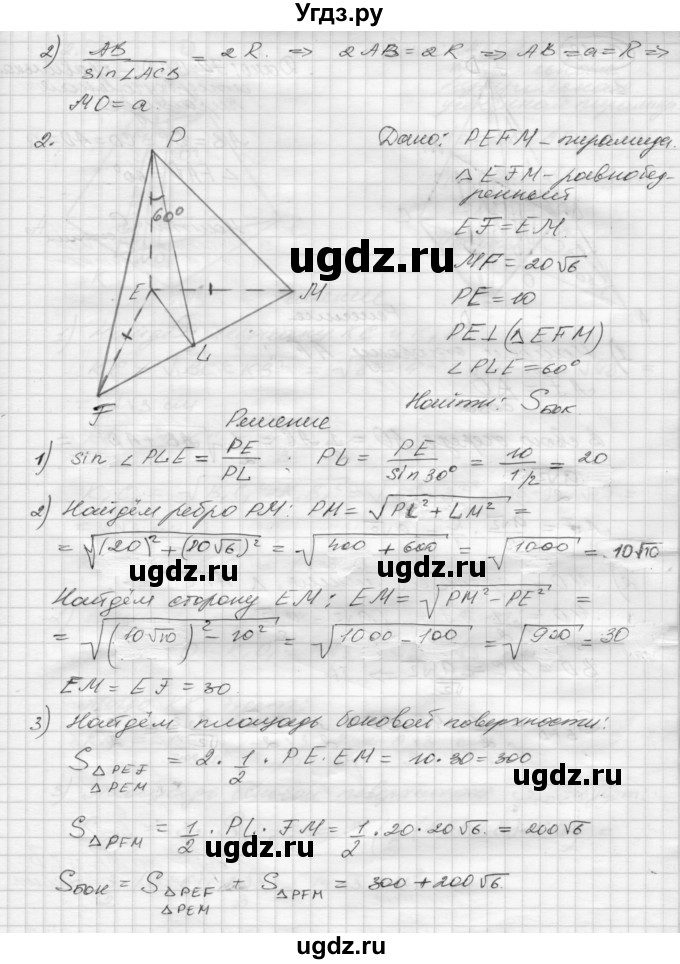 Угдз.ру
2) AB / sin∠ACB = 2R. => 2AB = 2R => AB = a = R =>
MO = a.
2.
P
60°
E
M
L
F
Дано: PEFM – пирамида.
△EFM – равнобед-
ренный
EF = EM.
MF = 20√6
PE = 10
PE⊥(△EFM)
∠PLE = 60°
Найти: Sбок
ugdz.ru
Решение
1) sin ∠PLE = PE / PL ; PL = PE / sin30° = 10 / 1/2 = 20
2) Найдём ребро PM: PM = √PL² + LM² =
= √(20)² + (10√6)² = √400 + 600 = √1000 = 10√10
ugdz.ru
ugdz.ru
Найдём сторону EM: EM = √PM² – PE² =
= √(10√10)² – 10² = √1000 – 100 = √900 = 30
EM = EF = 30.
3) Найдём площадь боковой поверхности:
S△PEF △PEM = 2 · 1/2 · PE · EM = 10 · 30 = 300
ugdz.ru
S△PFM = 1/2 · PL · FM = 1/2 · 20 · 20√6 = 200√6
ugdz.ru
Sбок = S△PEF △PEM + S△PFM = 300 + 200√6.
ugdz.ru
ugdz.ru